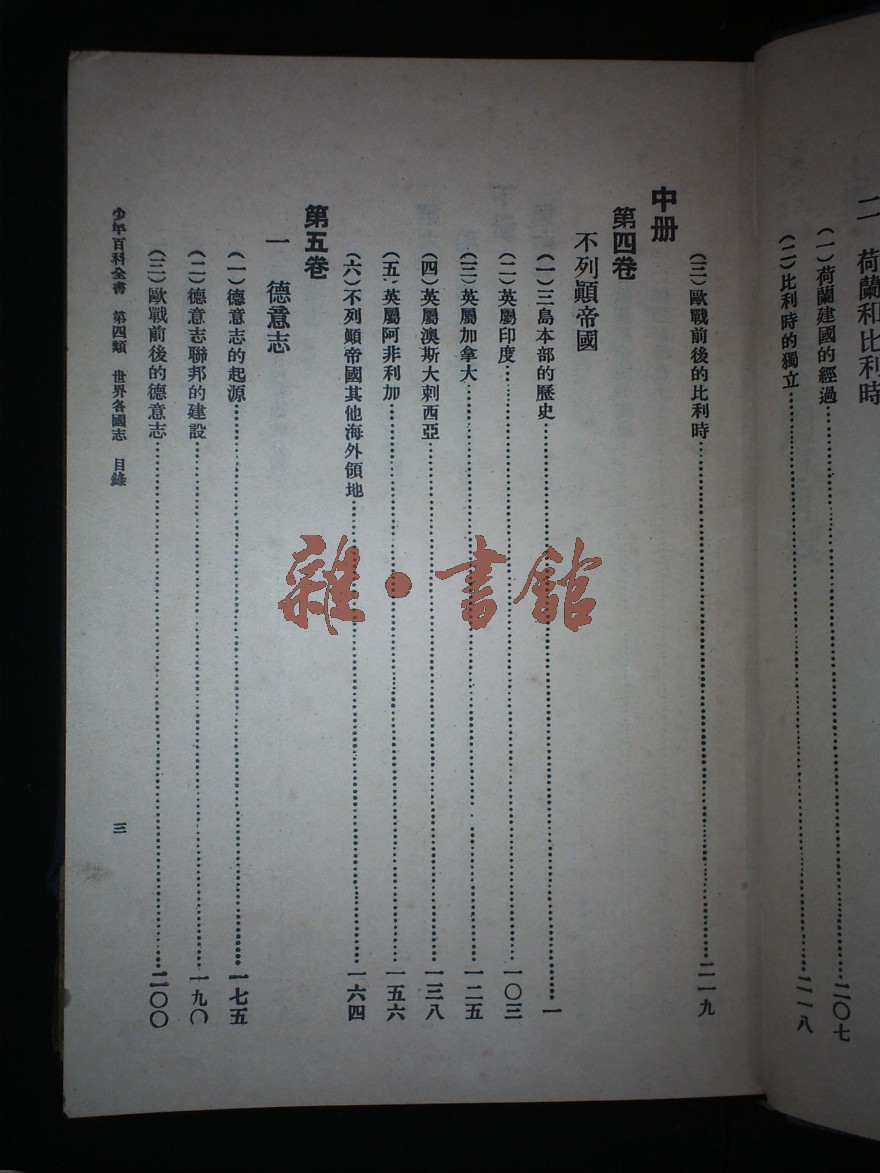 二　荷蘭和比利時
(一)荷蘭建國的經過……二〇七
(二)比利時的獨立……二一八
(三)歐戰前後的比利時……二一九
中册
第四卷
不列顚帝國
(一)三島本部的歷史……一
(二)英屬印度……一〇三
(三)英屬加拿大……一二五
(四)英屬澳斯大剌西亞……一三八
(五)英屬阿非利加……一五六
(六)不列顚帝國其他海外領地……一六四
第五卷
一　德意志
(一)德意志的起源……一七五
(二)德意志聯邦的建設……一九〇
(三)歐戰前後的德意志……二〇〇
少年百科全書　第四類　世界各國志　目錄
三
雜·書館